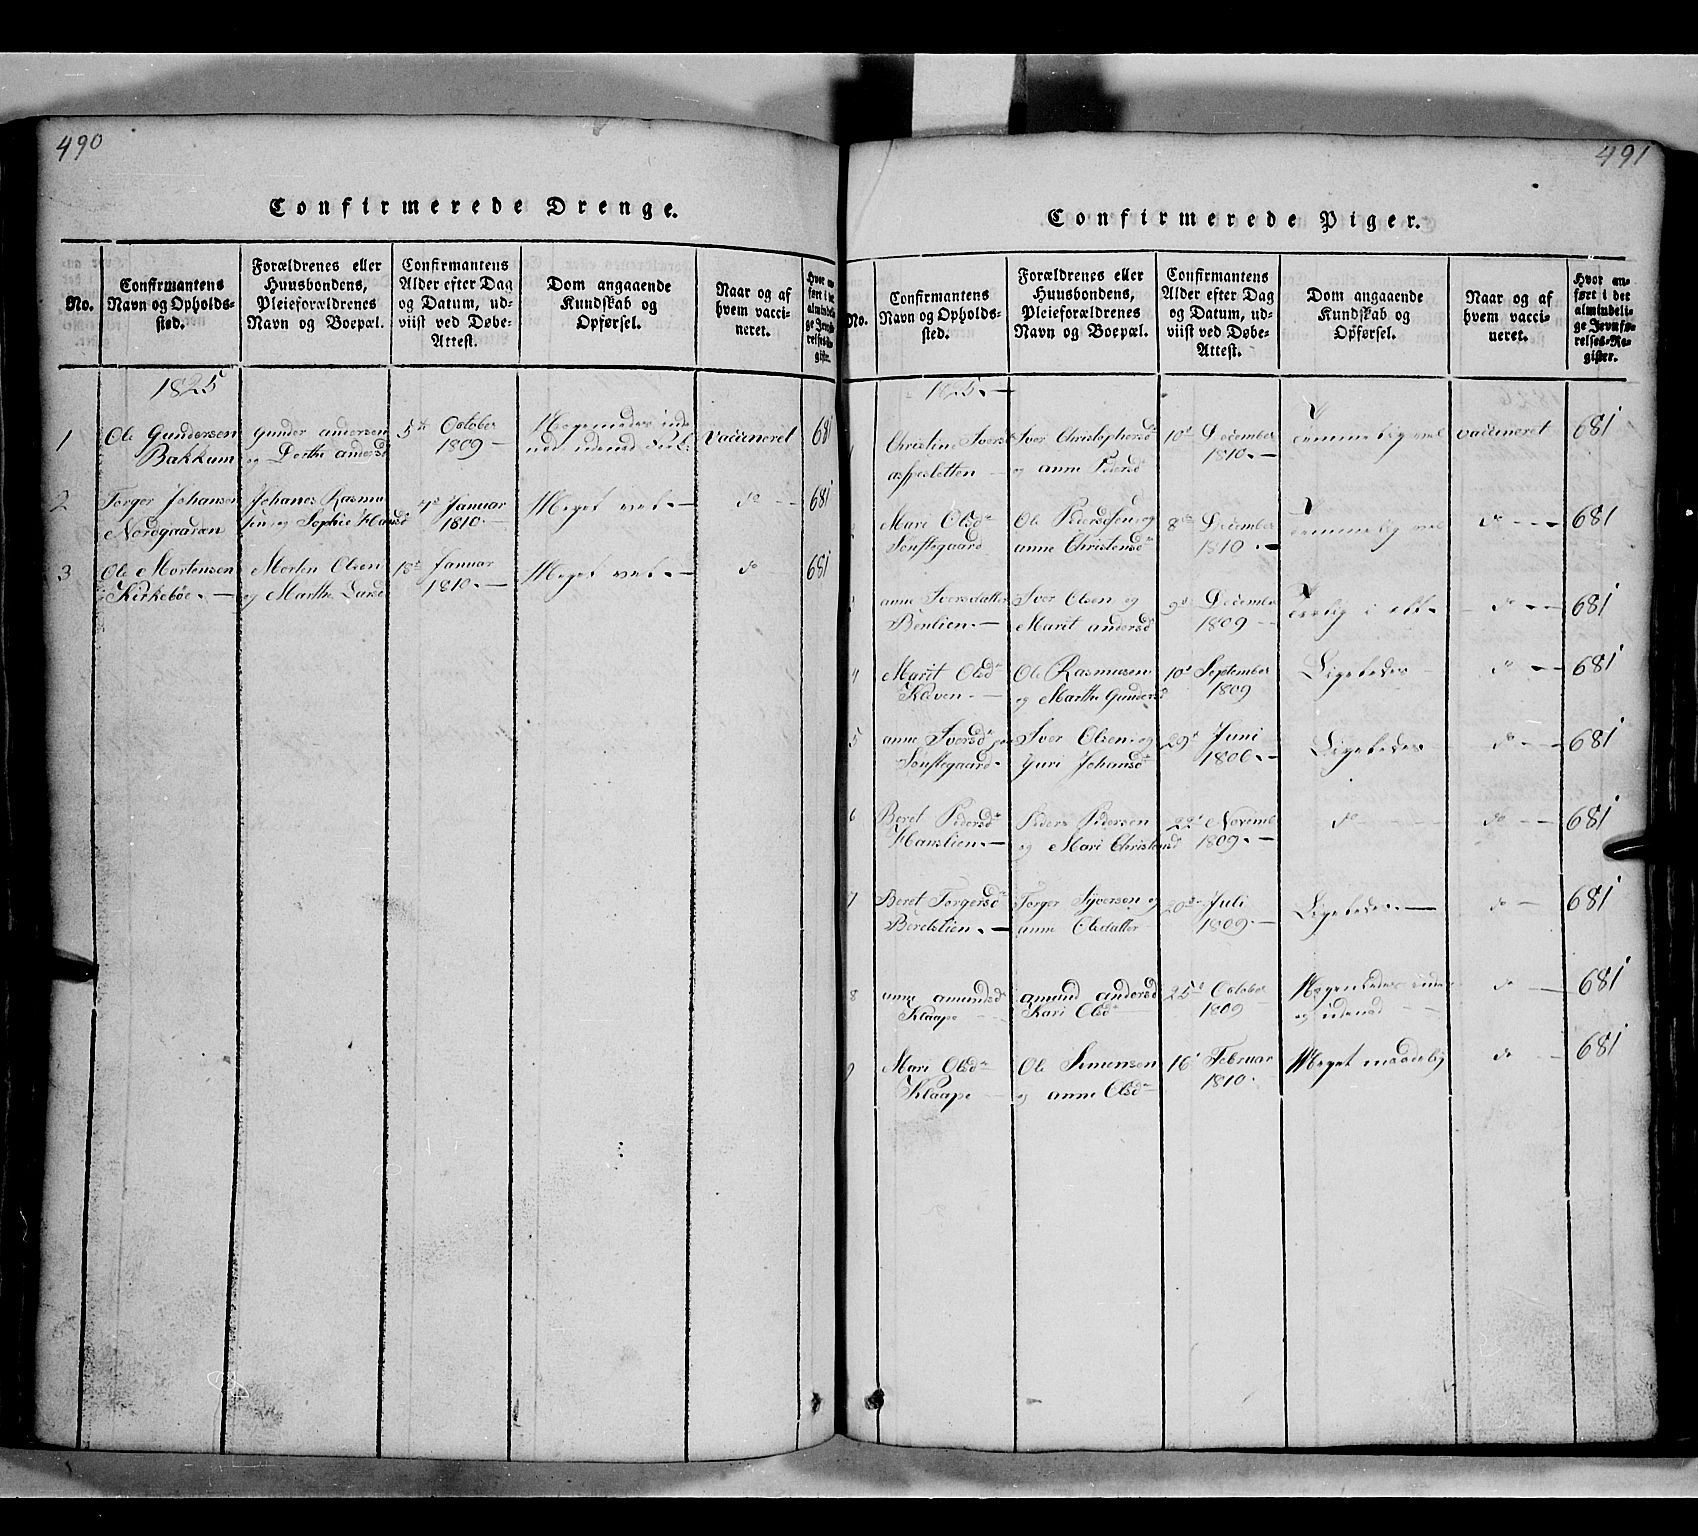 490
Confirmerede Drenge.
No.
Confirmantens
Navn og Opholds-
sted.
Forældrenes eller
Huusbondens,
Pleieforældrenes
Navn og Boepæl.
Confirmantens
Alder efter Dag
og Datum, ud-
viist ved Døbe-
Attest.
Dom angaaende
Kundskab og
Opførsel.
Naar og af
hvem vacci-
neret.
Hvor an-
ført i det
almindeli-
ge Jevnfø-
relses-Re-
gister.
1825
1
Ole Gundersen
Bakkum
Gunder andersen
og Dorthe andersd
5te October
1809
Vaccineret
681
2
Torger Johansen
Nordgaarden
Johanes Rasmu
sen og Sophie Hansd
4de Januar
1810
Meget vel
do
681
3
Ole Mortensen
Kirkebøe
Morten Olsen
og Marthe Larsd
18de Januar
1810
Meget vel
do
681
491
Confirmerede Piger.
No.
Confirmantens
Navn og Opholds-
sted.
Forældrenes eller
Huusbondens,
Pleieforældrenes
Navn og Boepæl.
Confirmantens
Alder efter Dag
og Datum, ud-
viist ved Døbe-
Attest.
Dom angaaende
Kundskab og
Opførsel.
Naar og af
hvem vacci-
neret.
Hvor an-
ført i det
almindeli-
ge Jevnfø-
relses-Re-
gister.
1825
Christine Iversd
aspesletten
Iver Christophersd
og anne Pedersd
10d December
1810
temmelig vel
vaccineret
681
Mari Olsdr
Sønstegaard
Ole Pedersen og
anne Christensdr
8de December
1810
temmelig vel
do
681
anne Iversdatter
Benlien
Iver Olsen og
Marit andersd
9d December
1809
do
681
4
Marit Olsdr
Kleven
Ole Rasmusen
og Marthe Gundersd
10d September
1809
Ligeledes
do
681
5
anne Iversdr
Sønstegaard
Iver Olsen og
Guri Johansdr
29d Juni
1806
Ligeledes
do
681
6
Beret Pedersdr
Hanslien
Peder Pedersen
og Mari Christensd
22d Novemb
1809
do
do
681
7
Beret Torgersdr
Beretslien
Torger Syversen og
anne Olsdatter
20de Juli
1809
Ligeledes
do
681
8
anne amundsdr
Klaape
amund andersd
Kari Olsdr
25d October
1809
og udenad
do
681
9
Mari Olsdr
Klaape
Ole Simensen
og anne Olsdr
16d Februar
1810
Meget maadelig
do
681